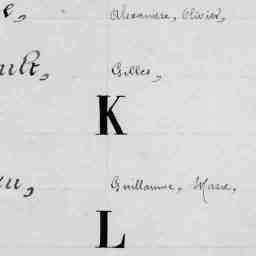 e, Alexandre, Olivier,
ult, Gilles,
K
u, Guillaume, Marie,
L